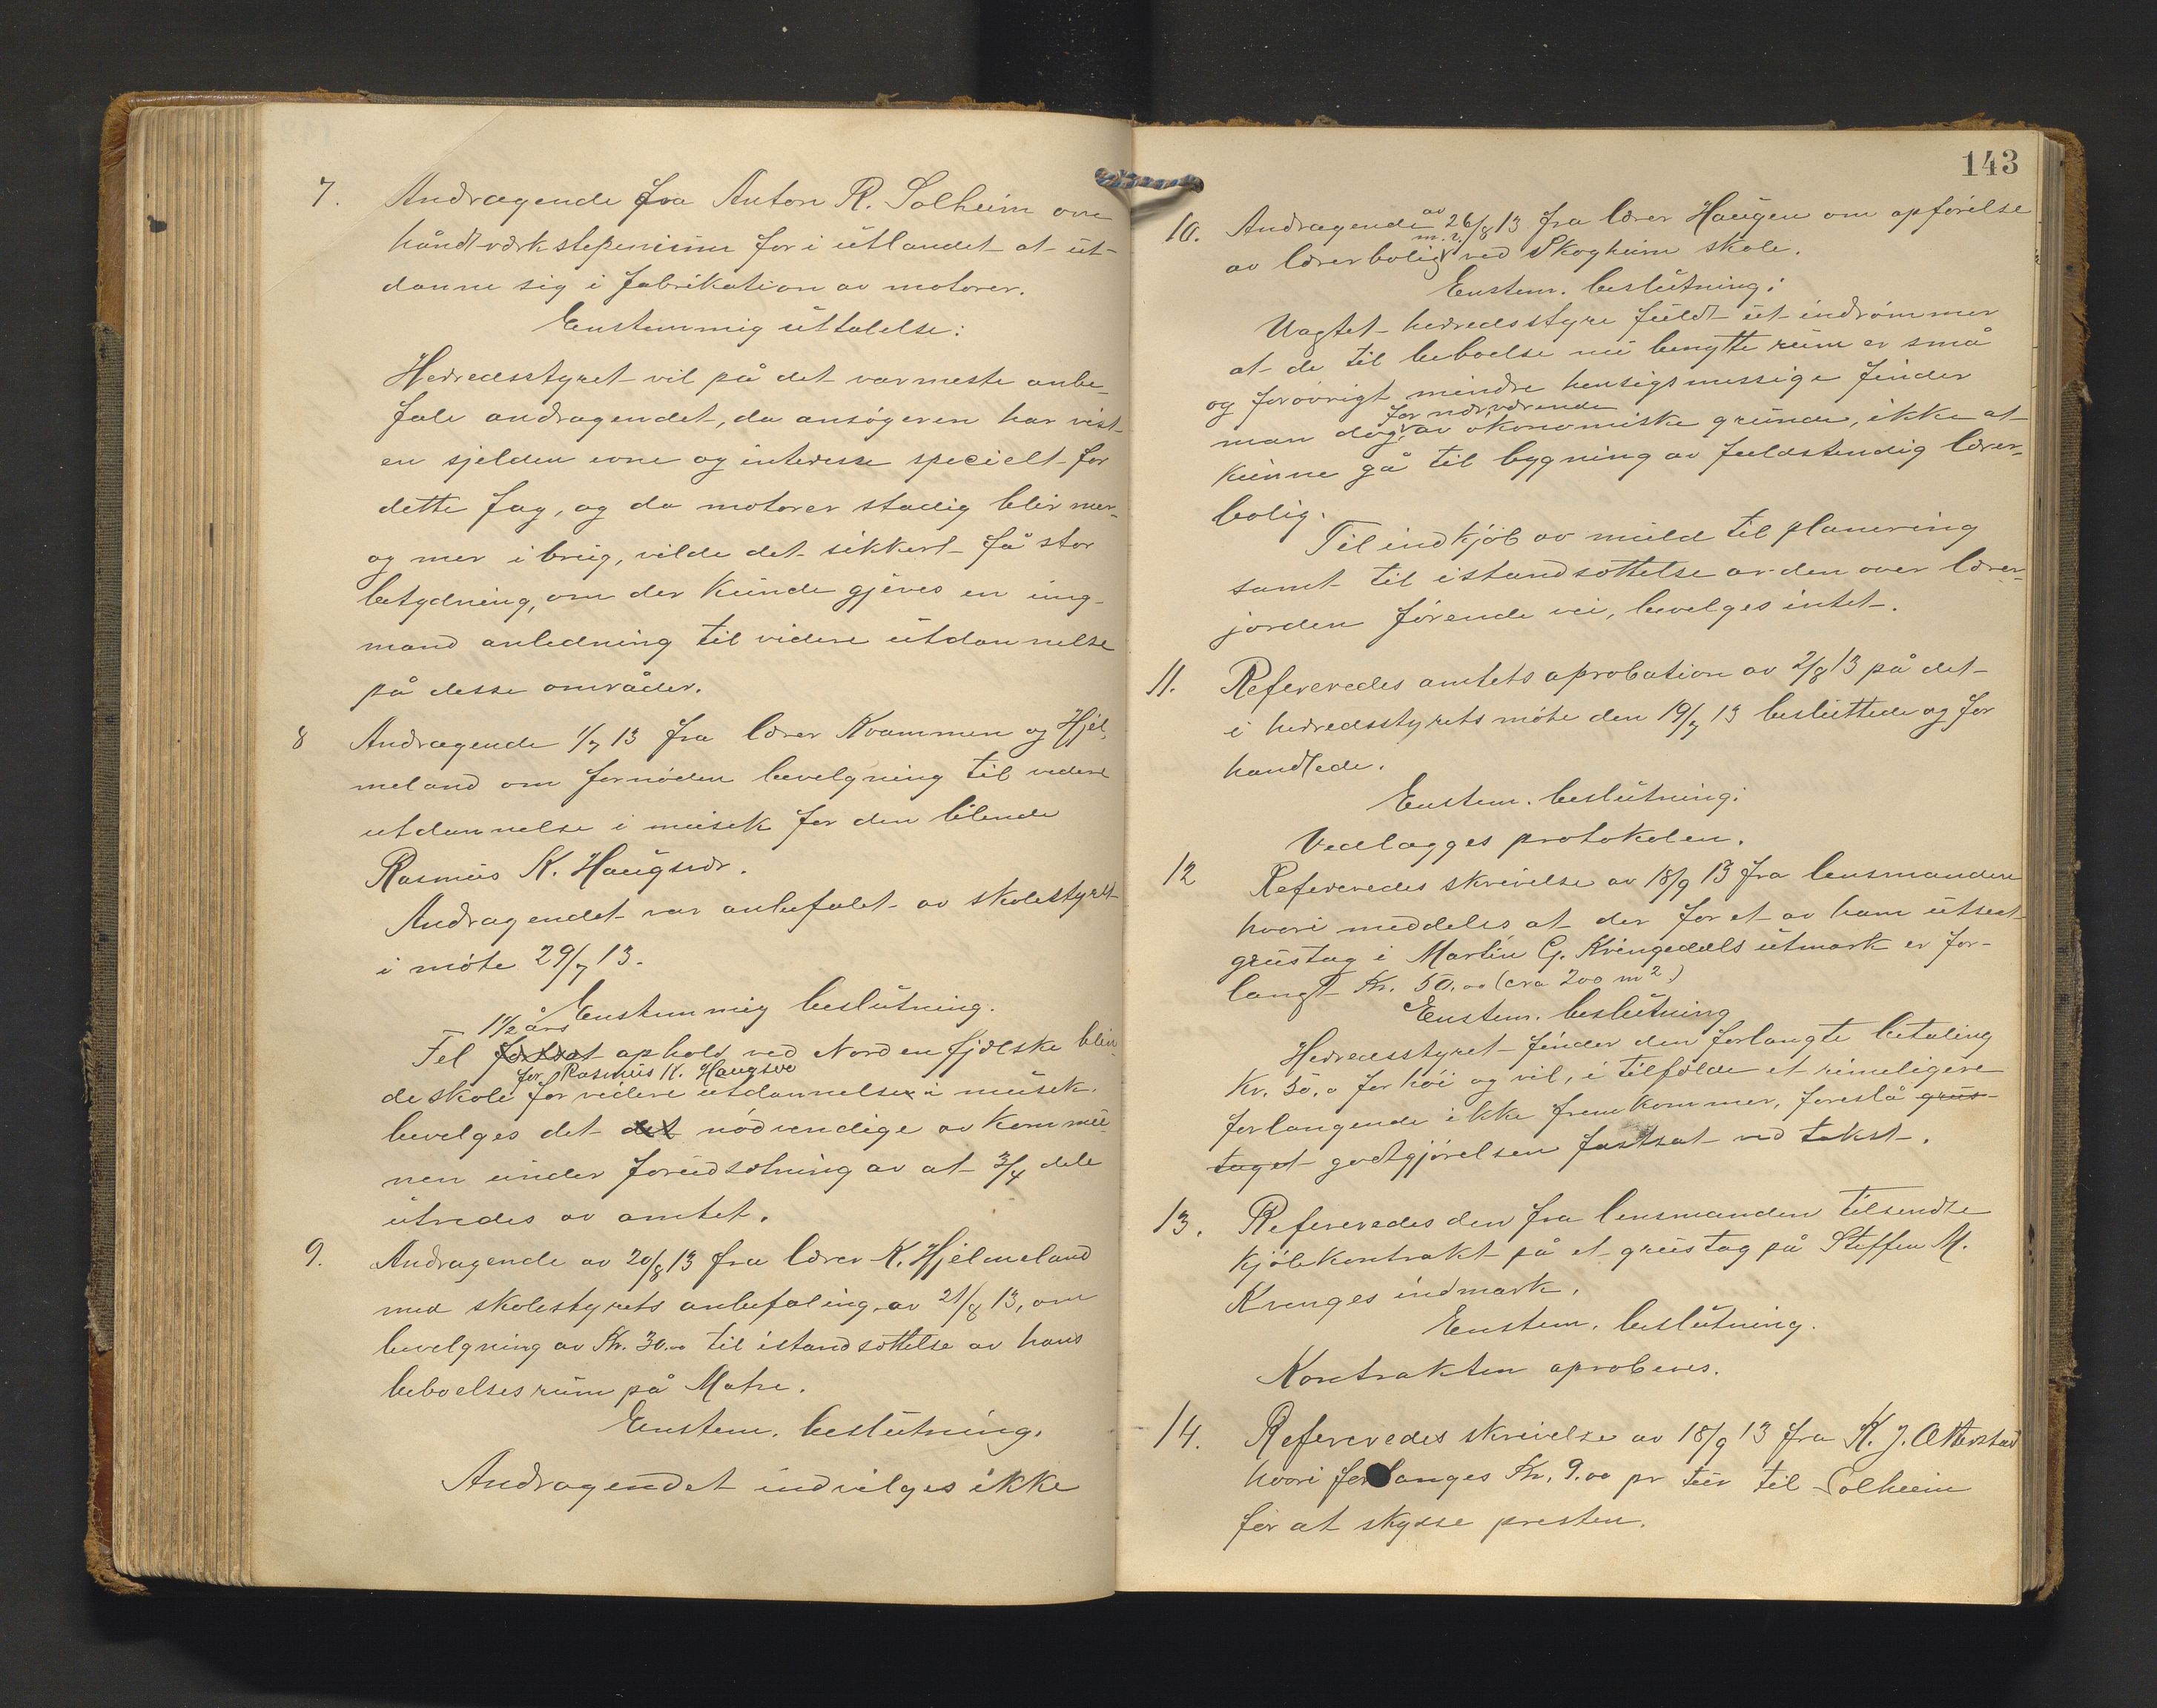 7. Andragende fra Anton R. Solheim om
håndtverkstipenium for i utlandet at ut-
danne sig i fabrikation av motorer.
Enstemmig uttalelse:
Herredsstyret vil på det varmeste anbe-
fale andragendet, da ansøgeren har vist
en sjelden evne og interesse specielt for
dette fag, og da motorer stadig blir mer
og mer i brug, vilde det sikkert få stor
betydning, om der kunde gjeves en ung
mand anledning til videre utdannelse
på desse områder.
8 Andragende 1/7 13 fra lærer Kvammen og Hjel-
meland om fornøden bevelgning til videre
utdannelse i musik for den blinde
Rasmus K. Haugsvær.
Andragendet var anbefalet av skolestyret
i møte 29/7 13.
Enstemmig beslutning.
1 1/2 års
Til fortsat ophold ved Nordenfjelske blin-
for Rasmus K. Haugsvæ
deskole for videre utdannelse i musik
bevelges det det nødvendige av kommu-
nen under forudsætning av at 3/4 dele
utredes av amtet.
9. Andragende av 20/8 13 fra lærer K. Hjelmeland
med skolestyrets anbefaling av 21/8 13, om
bevelgning av Kr. 30.00 til istandsættelse av hans
beboelsesrum på Matre.
Enstem. beslutning.
Andragendet indvilges ikke
143
10. Andragende av 26/8 13 fra lærer Haugen om opførelse
av lærerbolig m. v. ved Skogheim skole.
Enstem. beslutning:
Uagtet herredsstyre fuldt ut indrømmer
at de til beboelse nu benytte rum er små
og forøvrigt mindre hensigsmessige finder
for nærværende
man dog, av økonomiske grunde, ikke at
kunne gå til bygning av fuldstendig lærer-
bolig.
Til indkjøb av muld til planering
samt til istandsættelse av den over lærer-
jorden førende vei, bevelges intet.
11. Refereredes amtets aprobation av 2/8 13 på det
i herredsstyrets møte den 19/7 13 besluttede og for
handlede.
Enstem. beslutning:
Vedlægges protokolen.
12 Refereredes skrivelse av 18/9 13 fra lensmanden
hvori meddeles at der for et av ham utseet
grustag i Martin G. Kringedals utmark er for-
langt Kr. 50.00 (cra 200 m2)
Enstem. beslutning
Herredsstyret finder den forlangte betaling
Kr. 50.0 for høi og vil, i tilfelde et rimeligere
forlangende ikke fremkommer, foreslå grus-
taget godtgjørelsen fastsat ved takst.
13. Refereredes den fra lensmanden tilsendte
kjøbekontrakt på et grustag på Steffen M.
Krenges indmark.
Enstem. beslutning.
Kontrakten aproberes.
14. Refereredes skrivelse av 18/9 13 fra K. J. Otterstad
hvori forlanges Kr. 9.00 pr tur til Solheim
for at skydse presten.